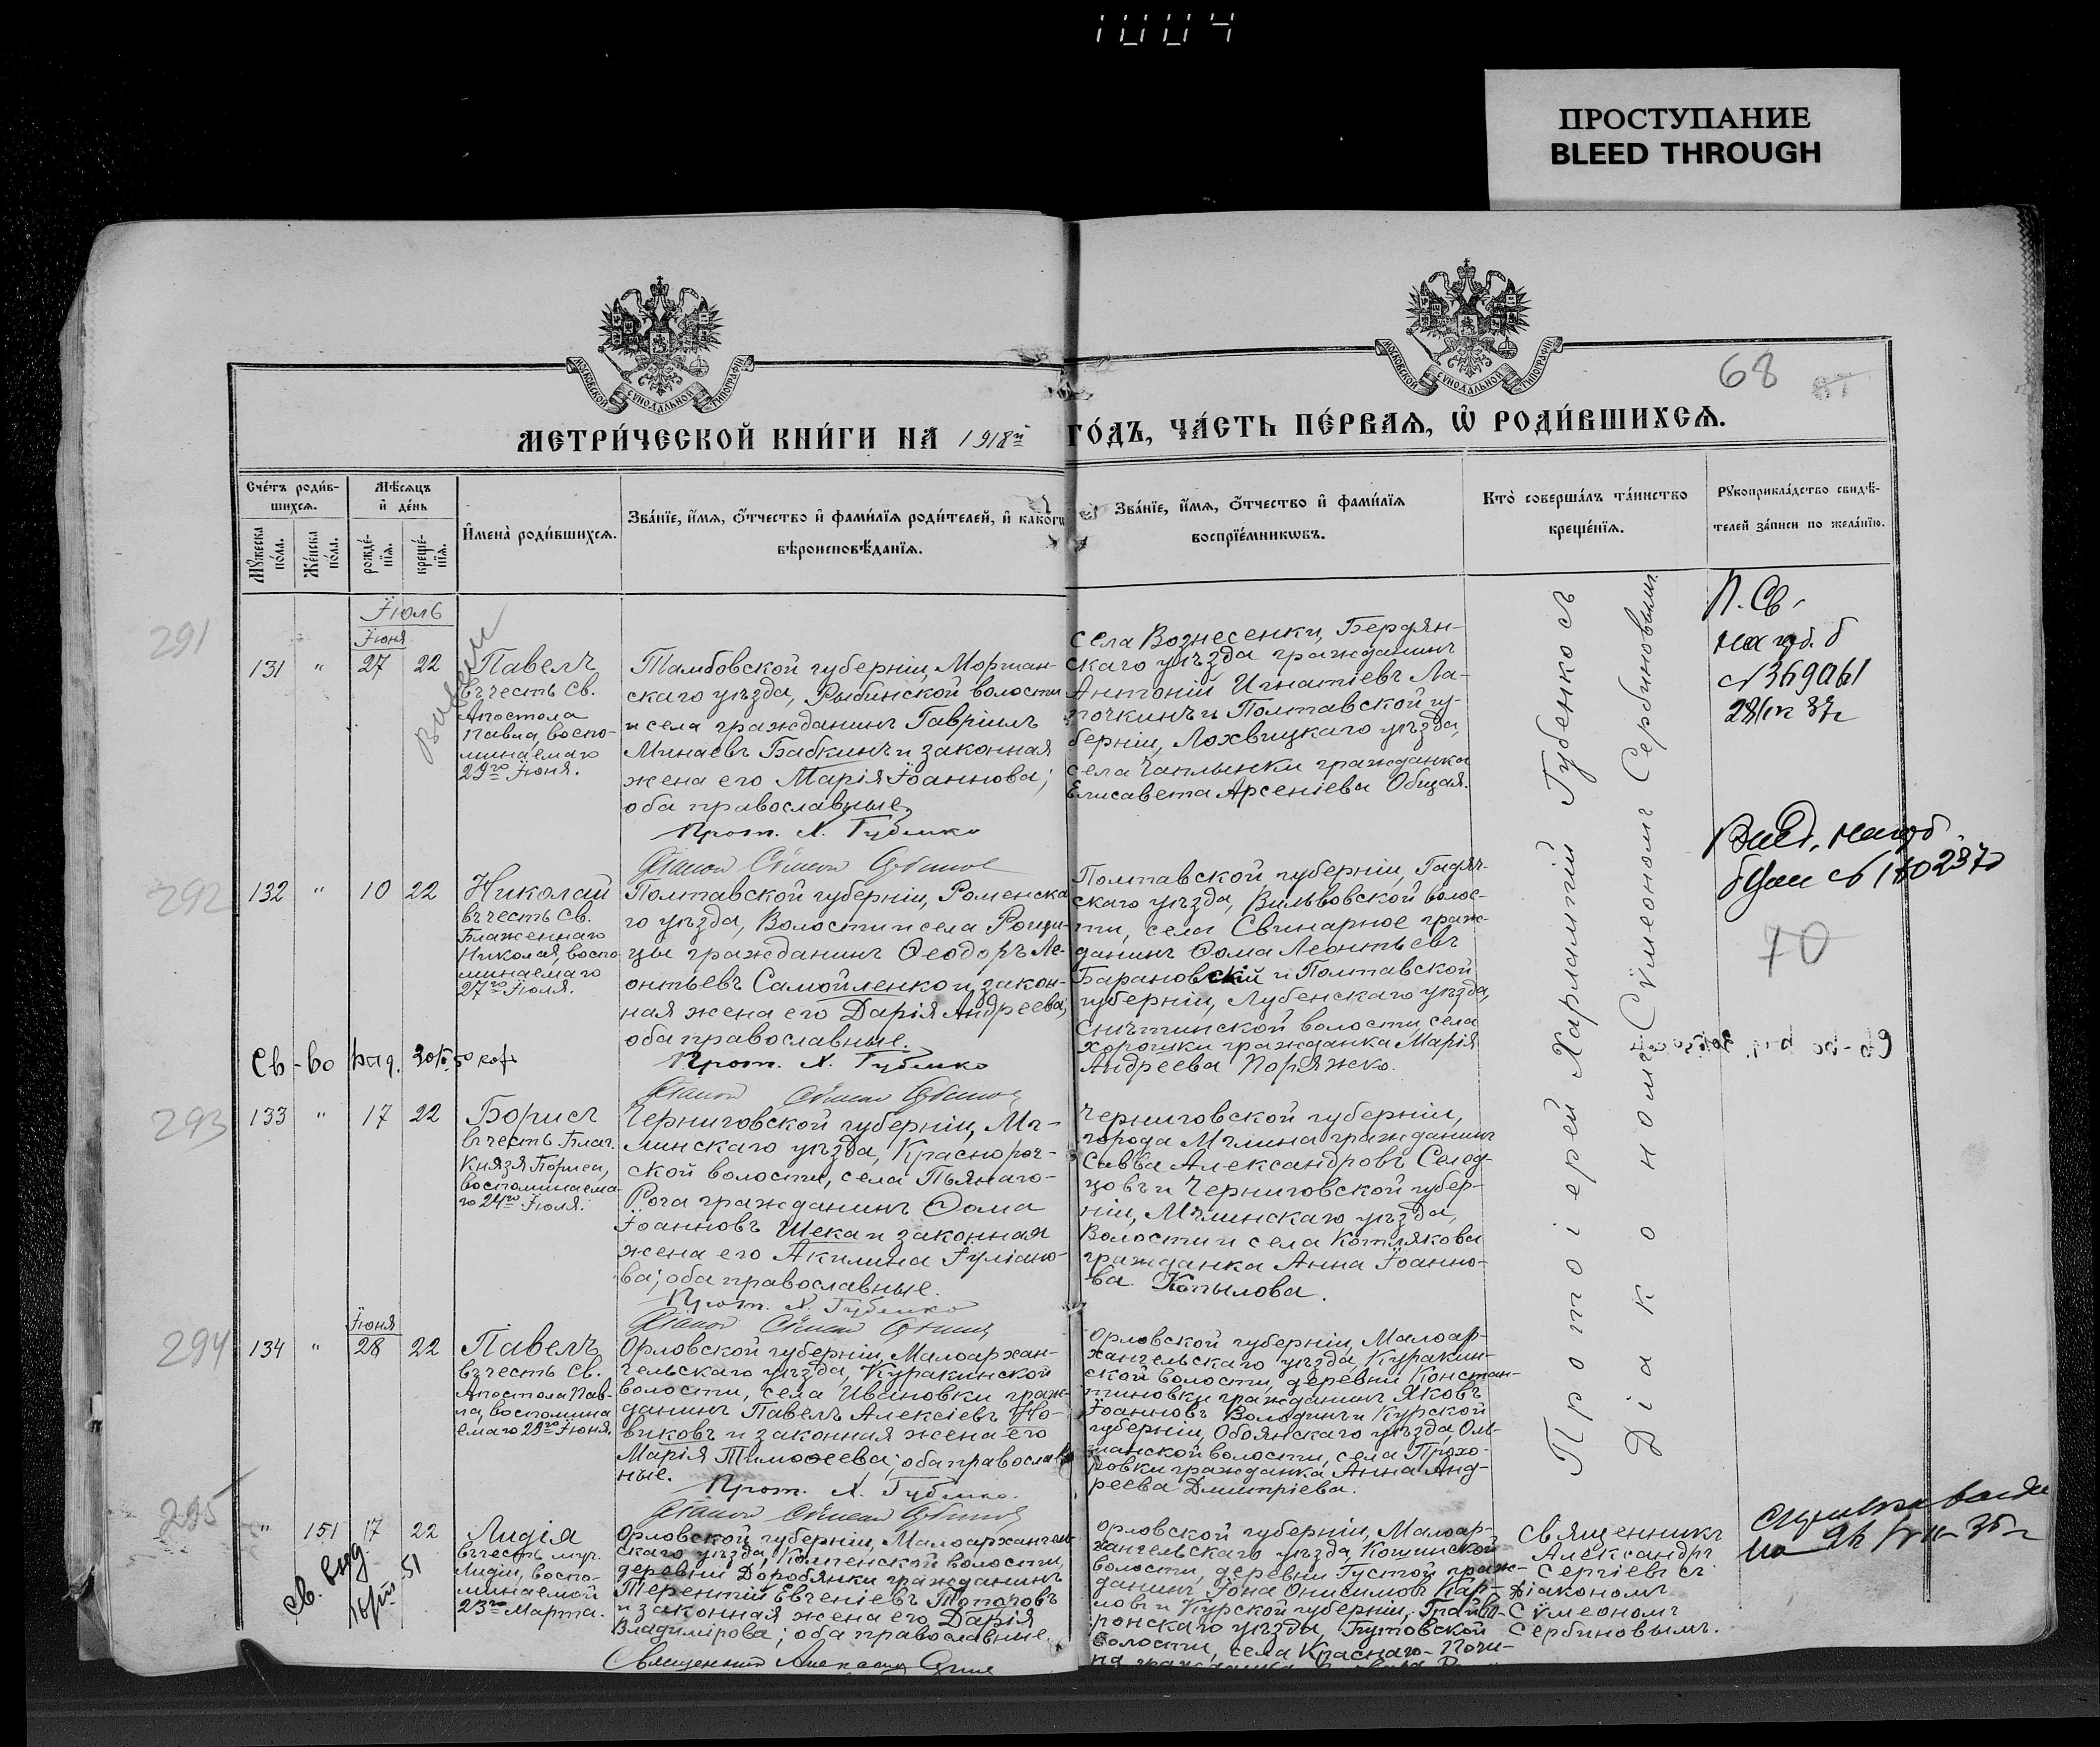 1004
ПРОСТУПАНИЕ
BLEED THROUGH
МОСКОВСКОЙ СѴНОДАЛЬНОЙ ТИПОГРАФІИ
МОСКОВСКОЙ СѴНОДАЛЬНОЙ ТИПОГРАФІИ
68
МЕТРИ́ЧЕСКОЙ КНИ́ГИ НА 1918й ГО́ДЪ, ЧА́СТЬ ПЕ́РВАЯ, Ѡ҆ РОДИ́ВШИХСЯ.
Сче́тъ роди́в-
шихся.
Мѣ́сяцъ
и҆ де́нь
Мꙋ́жеска по́ла.
Же́нска по́ла.
рожде́-
нїя.
креще́-
нїя.
И҆мена̀ роди́вшихся.
Зва́нїе, и҆́мя, ѻ҆́тчество и҆ фами́лїя роди́телей, и҆ како́гѡ
вѣроисповѣ́данїя.
Зва́нїе, и҆́мя, ѻ҆́тчество и҆ фами́лїя
воспрїе́мникѡвъ.
Кто̀ соверша́лъ та́инство
креще́нїя.
Рꙋкоприкла́дство свидѣ́-
телей за́писи по жела́нїю.
291
Іюль
Іюня
131 " 27 22
Павелъ
въ честь Св.
Апостола
Павла, воспо-
минаемаго
29го Іюня.
Тамбовской губерніи, Моршан-
скаго уѣзда, Рыбинской волости
и села гражданинъ Гавріилъ
Минаевъ Бабкинъ и законная
жена его Марія Іоаннова;
оба православные.
Прот. Х. Губенко
села Вознесенки, Бердян-
скаго уѣзда гражданинъ
Антоній Игнатіевъ Ла-
почкинъ и Полтавской гу-
берніи, Лохвицкаго уѣзда,
села Чаплынки гражданка
Елисавета Арсеніева Общая.
Протоіерей Харлампій Губенко съ
Діакономъ Сѵмеономъ Сербиновымъ.
П. Св.
369061
292
132 " 10 22
Николай
въ честь Св.
Блаженнаго
Николая, воспо-
минаемаго
27го Іюля.
Полтавской губерніи, Роменска-
го уѣзда, Волости и села Рощи-
цы гражданинъ Ѳеодоръ Ле-
онтьевъ Самойленко и закон-
ная жена его Дарія Андреева;
оба православные.
Прот. Х. Губенко
Полтавской губерніи, Гадяч-
скаго уѣзда, Вильвовской волос-
ти, села Свинарное граж-
данинъ Ѳома Леонтьевъ
Барановскій и Полтавской
губерніи, Лубенскаго уѣзда,
Снѣтинской волости, села
Хорошки гражданка Марія
Андреева Поряжко.
70
Св-во
293
133 " 17 22
Борисъ
въ честь Благ.
Князя Бориса,
воспоминаема-
го 24го Іюля.
Черниговской губерніи, Мг-
линскаго уѣзда, Краснорог-
ской волости, села Пьянаго-
Рога гражданинъ Ѳома
Іоанновъ Шека и законная
жена его Акилина Іуліано-
ва; оба православные.
Прот. Х. Губенко
Черниговской губерніи,
города Мглина гражданинъ
Савва Александровъ Селед-
цовъ и Черниговской губер-
ніи, Мглинскаго уѣзда,
Волости и села Котлякова
гражданка Анна Іоанно-
ва Копылова.
294
Іюня
134 " 28 22
Павелъ
въ честь Св.
Апостола Пав-
ла, воспомина
емаго 29го Іюня.
Орловской губерніи, Малоархан-
гельскаго уѣзда, Куракинской
волости, села Ивановки граж-
данинъ Павелъ Алексіевъ Но-
виковъ и законная жена его
Марія Тимоѳеева; оба православ-
ные.
Прот. Х. Губенко.
Орловской губерніи, Малоар-
хангельскаго уѣзда, Куракин-
ской волости, деревни Констан-
тиновки гражданинъ Яковъ
Іоанновъ Володинъ и Курской
губерніи, Обоянскаго уѣзда, Оль-
шанской волости, села Прохо-
ровки гражданка Анна Анд-
реева Дмитріева.
295
" 151 17 22
Лидія
въ честь муч.
Лидіи, воспо-
минаемой
23го Марта.
Орловской губерніи, Малоархангель-
скаго уѣзда, волости,
деревни Доробянки гражданинъ
Терентій Евгеніевъ Топоровъ
и законная жена его Дарія
Владимірова; оба православные.
Орловской губерніи, Малоар-
хангельскаго уѣзда,
волости, деревни Густой граж-
данинъ Іона Онисимовъ Кар-
ловъ и Курской губерніи, Грайво-
ронскаго уѣзда,
волости, села Краснаго-Почи-
Священникъ
Александръ
Сергіевъ съ
Діакономъ
Сѵмеономъ
Сербиновымъ.